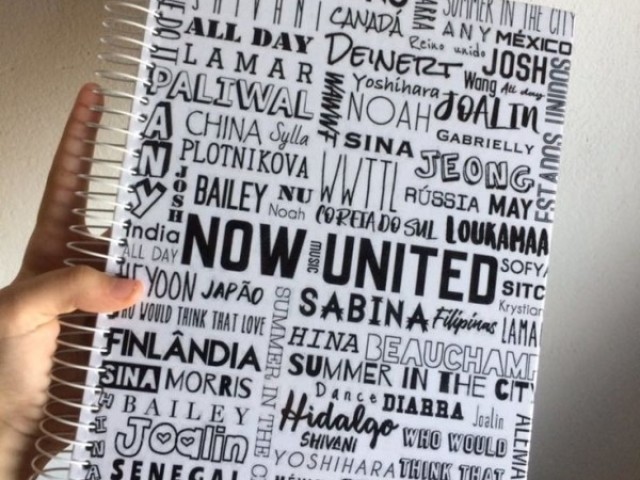 SHIVANI
CANADÁ
SUMMER IN THE CITY
ANY MÉXICO
ALL DAY
Reino unido
DEINERT
JOSH
LAMAR
Yoshihara
Wang All day
PALIWAL
NOAH
JOALIN
ANY
CHINA Sylla
WWWF
SINA
GABRIELLY
ESTADOS UNIDOS
PLOTNIKOVA
WWTTL
JEONG
JOSH
BAILEY NU
RÚSSIA MAY
Noah
COREIA DO SUL
LOUKAMAA
India
ALL DAY
NOW UNITED
MUSIC
SOFYA
HEYOON JAPÃO
SABINA
Filipinas
SITC
Krystian
WHO WOULD THINK THAT LOVE
SUMMER IN THE CITY
LAMAR
FINLÂNDIA
HINA BEAUCHAMP
SINA MORRIS
SUMMER IN THE CITY
Dance DIARRA Joalin
HINA
BAILEY
Hidalgo
ALEMANHA
Joalin
SHIVANI
WHO WOULD
YOSHIHARA
THINK THAT
SENEGAL